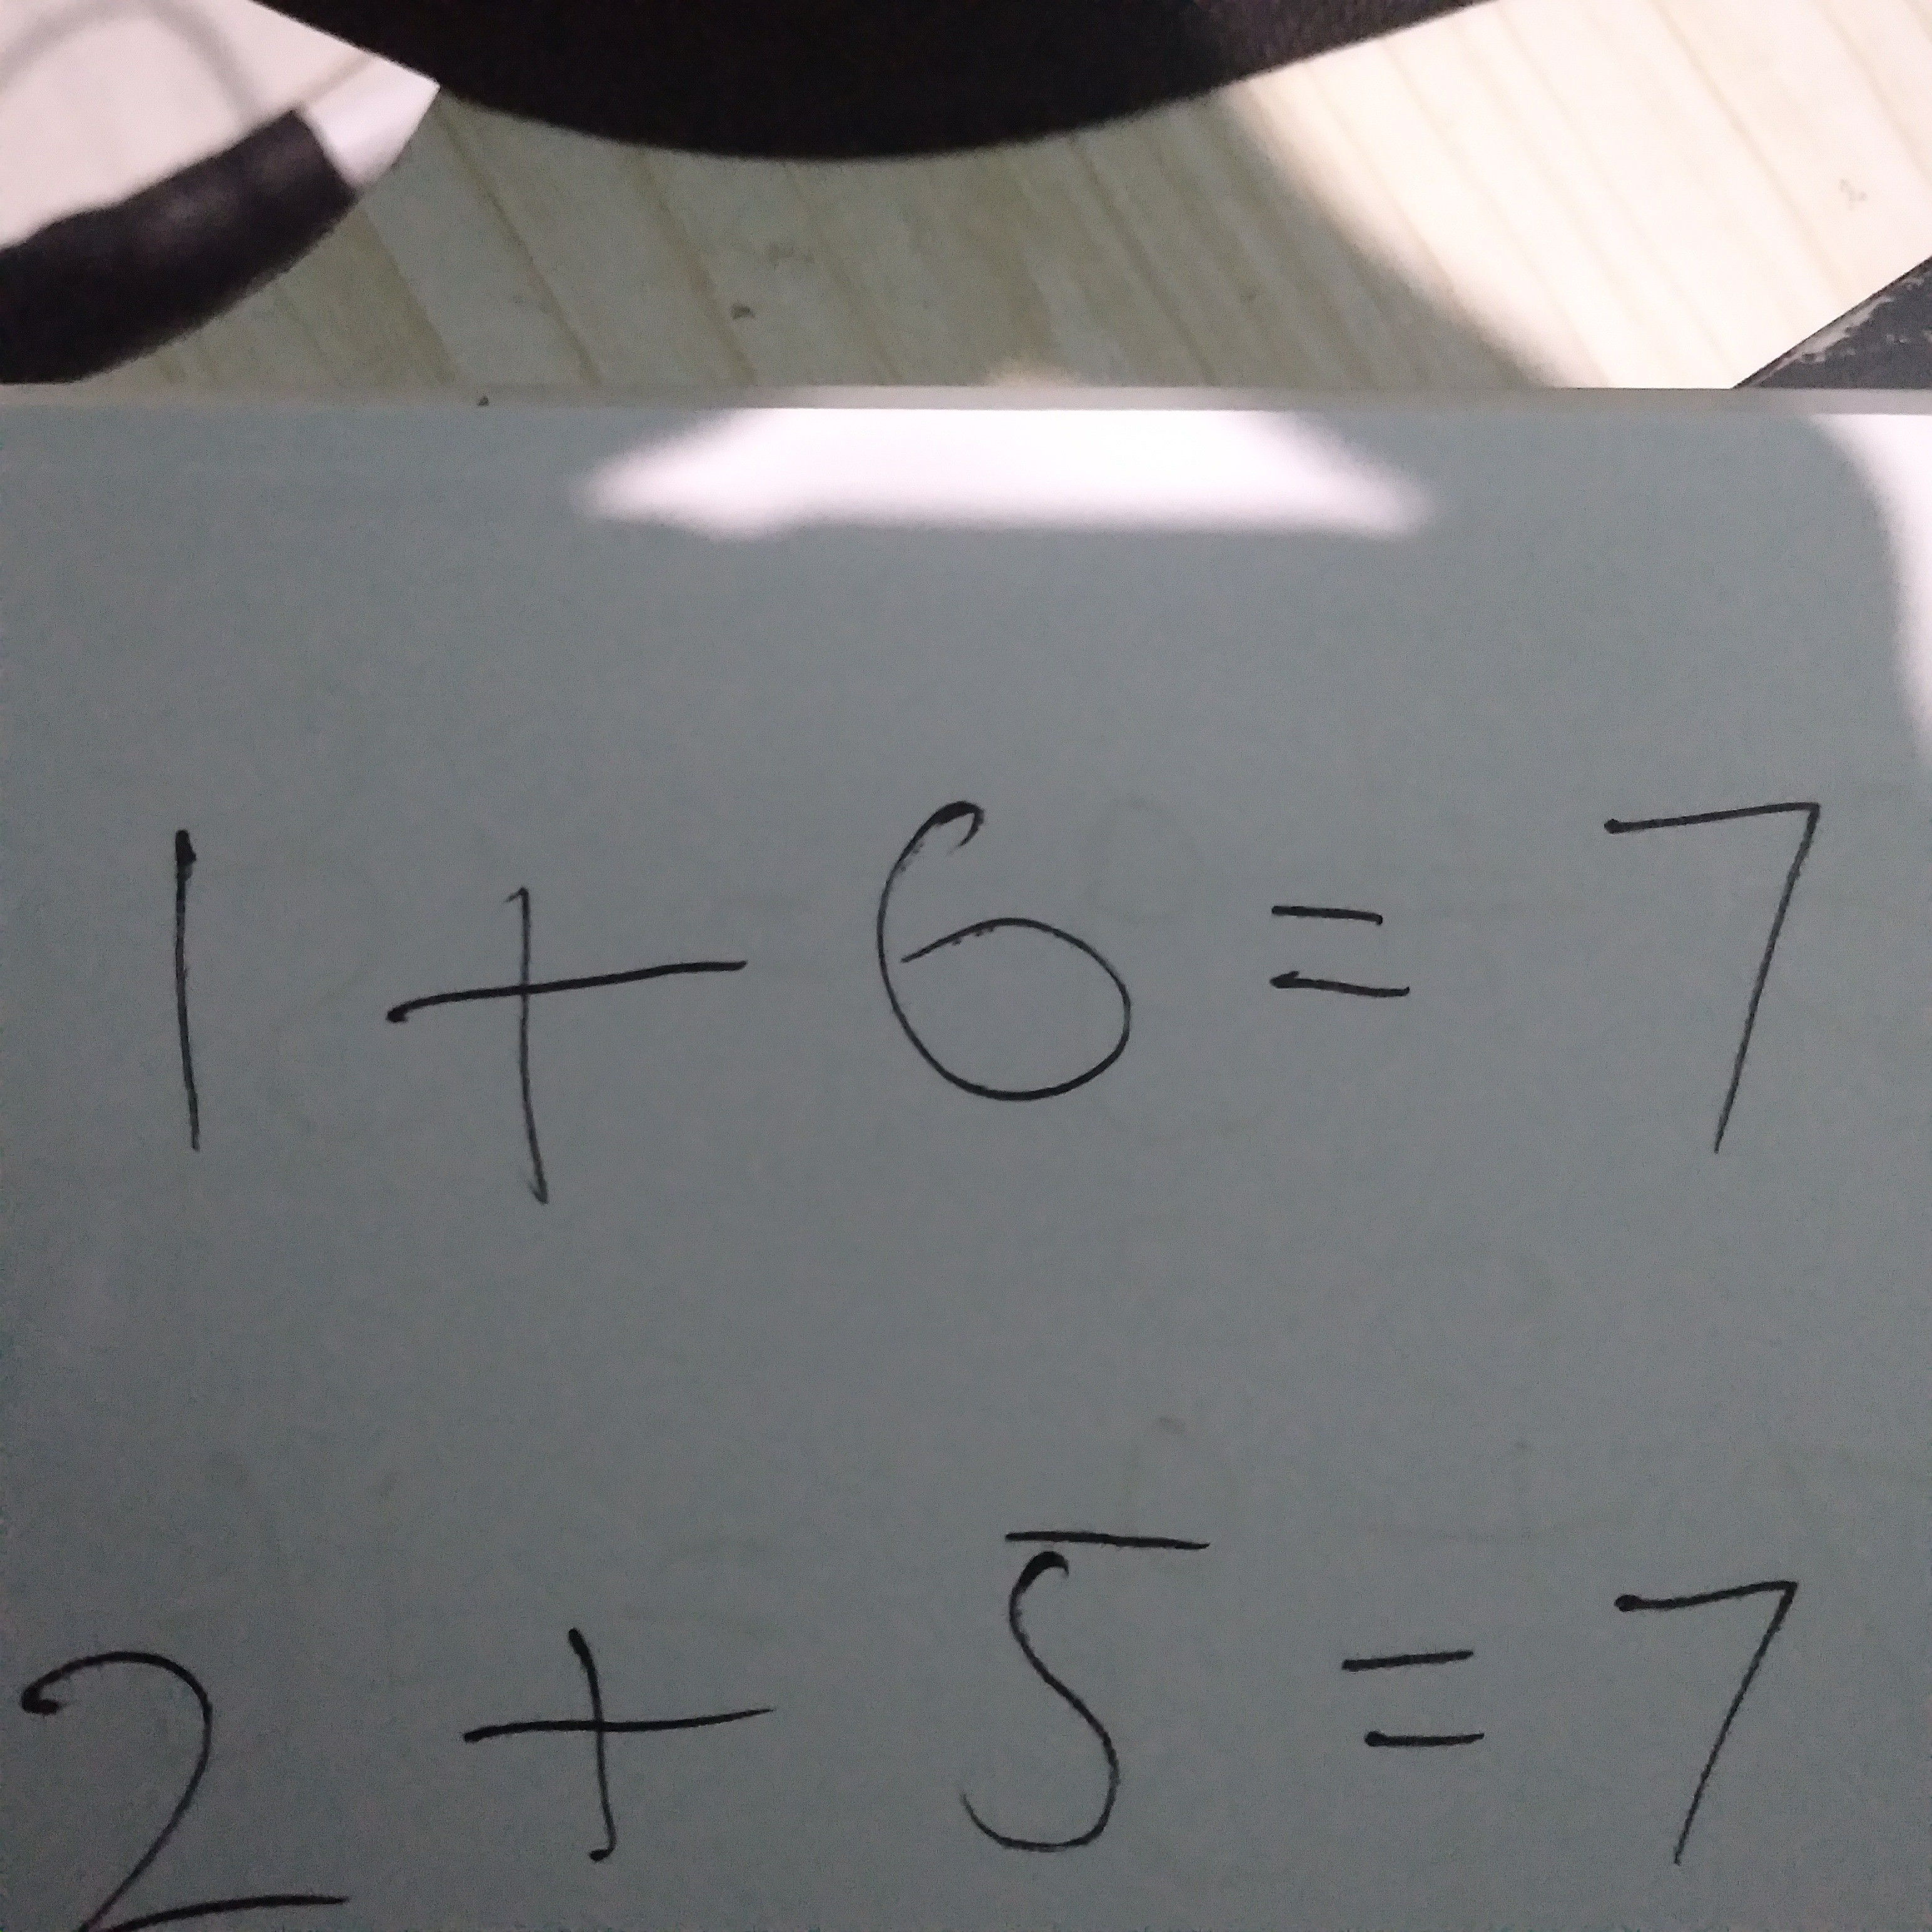 1 + 6 = 7
2 + 5 = 7